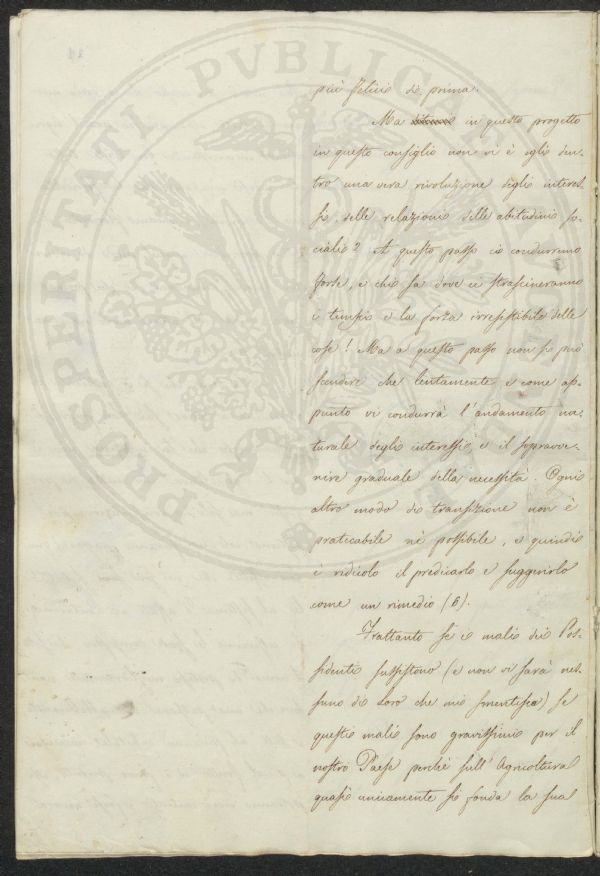 PROSPERITATI PVBLICAE
più felici di prima.
Ma in questo progetto
in questo consiglio non vi è egli den-
tro una vera rivoluzione degli interes-
si, delle relazioni delle abitudini so-
ciali? A questo passo ci condurranno
forse, e chi sa dove ci strascineranno
i tempi e la forza irresistibile delle
cose! Ma a questo passo non si può
scendere che lentamente, e come ap-
punto vi condurrà l'andamento na-
turale degli interessi, e il sopravve-
nire graduale della necessità. Ogni
altro modo di transizione non è
praticabile nè possibile, e quindi
è ridicolo il predicarlo e suggerirlo
come un rimedio (6).
Frattanto se i mali dei Pos-
sidenti sussistono (e non vi sarà nes-
suno di loro che mi smentisca) se
questi mali sono gravissimi per il
nostro Paese perchè sull' Agricoltura
quasi unicamente si fonda la sua